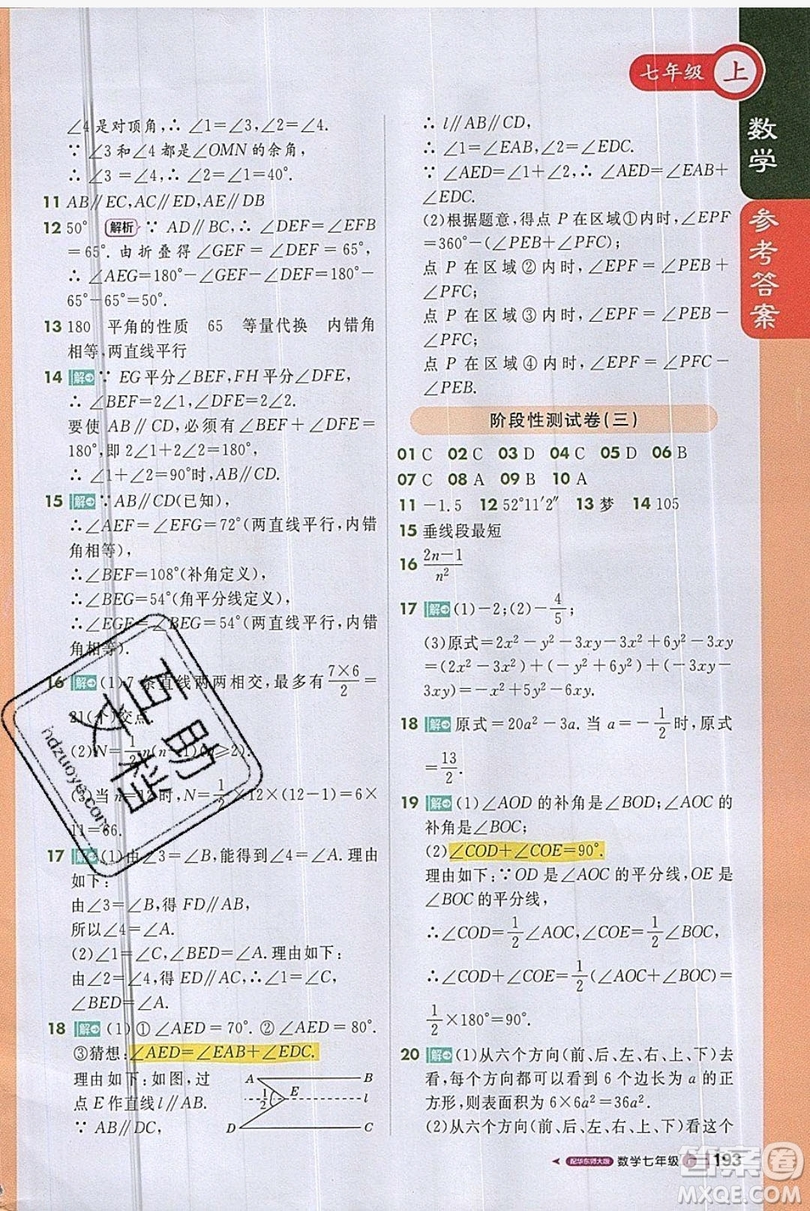 七年级 上
数学
参考答案
∠4 是对顶角,∴ ∠1=∠3,∠2=∠4.
∵ ∠3 和∠4 都是∠OMN 的余角,
∴ ∠3=∠4. ∴ ∠2=∠1=40°.
11 AB∥EC,AC∥DE,AE∥DB
12 50° 解析 ∵ AD∥BC,∴ ∠DEF=∠EFB
=65°. 由折叠得∠GEF=∠DEF=65°,
∴ ∠AEG=180°-∠GEF-∠DEF=180°-
65°-65°=50°.
13 180 平角的性质 65 等量代换 内错角
相等,两直线平行
14 解 ∵ EG平分∠BEF,FH平分∠DFE,
∴ ∠BEF=2∠1,∠DFE=2∠2.
要使 AB∥CD,必须有∠BEF+∠DFE=
180°,即 2∠1+2∠2=180°,
∴ ∠1+∠2=90°时,AB∥CD.
15 解 ∵AB∥CD(已知),
∴∠AEF=∠EFG=72°(两直线平行,内错
角相等),
∴∠BEF=108°(补角定义),
∴∠BEG=54°(角平分线定义),
∴∠EGF=∠BEG=54°(两直线平行,内错
角相等).
16 解 (1)7 条直线两两相交,最多有 7×6/2 =
21(个)交点
(2)N=1/2 n(n-1)(n≥2).
(3)当 n=12 时,N=1/2×12×(12-1)=6×
11=66.
17 解 (1)由∠3=∠B,能得到∠4=∠A. 理由
如下:
由∠3=∠B,得 FD∥AB,
所以∠4=∠A.
(2)∠1=∠C,∠BED=∠A. 理由如下:
由∠2=∠C,得 ED∥AC,∴ ∠1=∠C,
∠BED=∠A.
18 解 (1) ① ∠AED=70°. ② ∠AED=80°.
③猜想:∠AED=∠EAB+∠EDC.
理由如下:如图,过
点 E 作直线 l∥AB.
∵ AB∥DC,
A B
1
2 E l
D C
∴ l∥AB∥CD,
∴ ∠1=∠EAB,∠2=∠EDC.
∵ ∠AED=∠1+∠2,∴ ∠AED=∠EAB+
∠EDC.
(2)根据题意,得点 P 在区域①内时,∠EPF
=360°-(∠PEB+∠PFC);
点 P 在区域②内时,∠EPF=∠PEB+
∠PFC;
点 P 在区域③内时,∠EPF=∠PEB-
∠PFC;
点 P 在区域④内时,∠EPF=∠PFC-
∠PEB.
阶段性测试卷(三)
01 C 02 C 03 D 04 C 05 D 06 B
07 C 08 A 09 B 10 A
11 -1.5 12 52°11′2″ 13 梦 14 105
15 垂线段最短
16 2n-1/n²
17 解 (1)-2;(2)-4/5;
(3)原式=2x²-y²-3xy-3x²+6x²-y²
=(2x²-3x²+6x²)+(-y²-y²)-3xy=
5x²-2y²-3xy.
18 解 原式=20a²-3a. 当 a=-1/2时,原式
=13/2.
19 解 (1)∠AOD 的补角是∠BOD;∠AOC
的补角是∠BOC;
(2)∠COD+∠COE=90°.
理由如下:∵OD 是∠AOC 的平分线,OE 是
∠BOC 的平分线,
∴∠COD=1/2∠AOC,∠COE=1/2∠BOC,
∴∠COD+∠COE=1/2(∠AOC+∠BOC)=
1/2×180°=90°.
20 解 (1)从六个方向(前、后、左、右、上、下)去
看,每个方向都能看到 6 个边长为 a 的正
方形,则表面积为 6×6a²=36a².
(2)从六个方向(前、后、左、右、上、下)去看,
配华东师大版 数学七年级 193
互助
文档
hdzuoye.com
答案圈
MXQE.COM